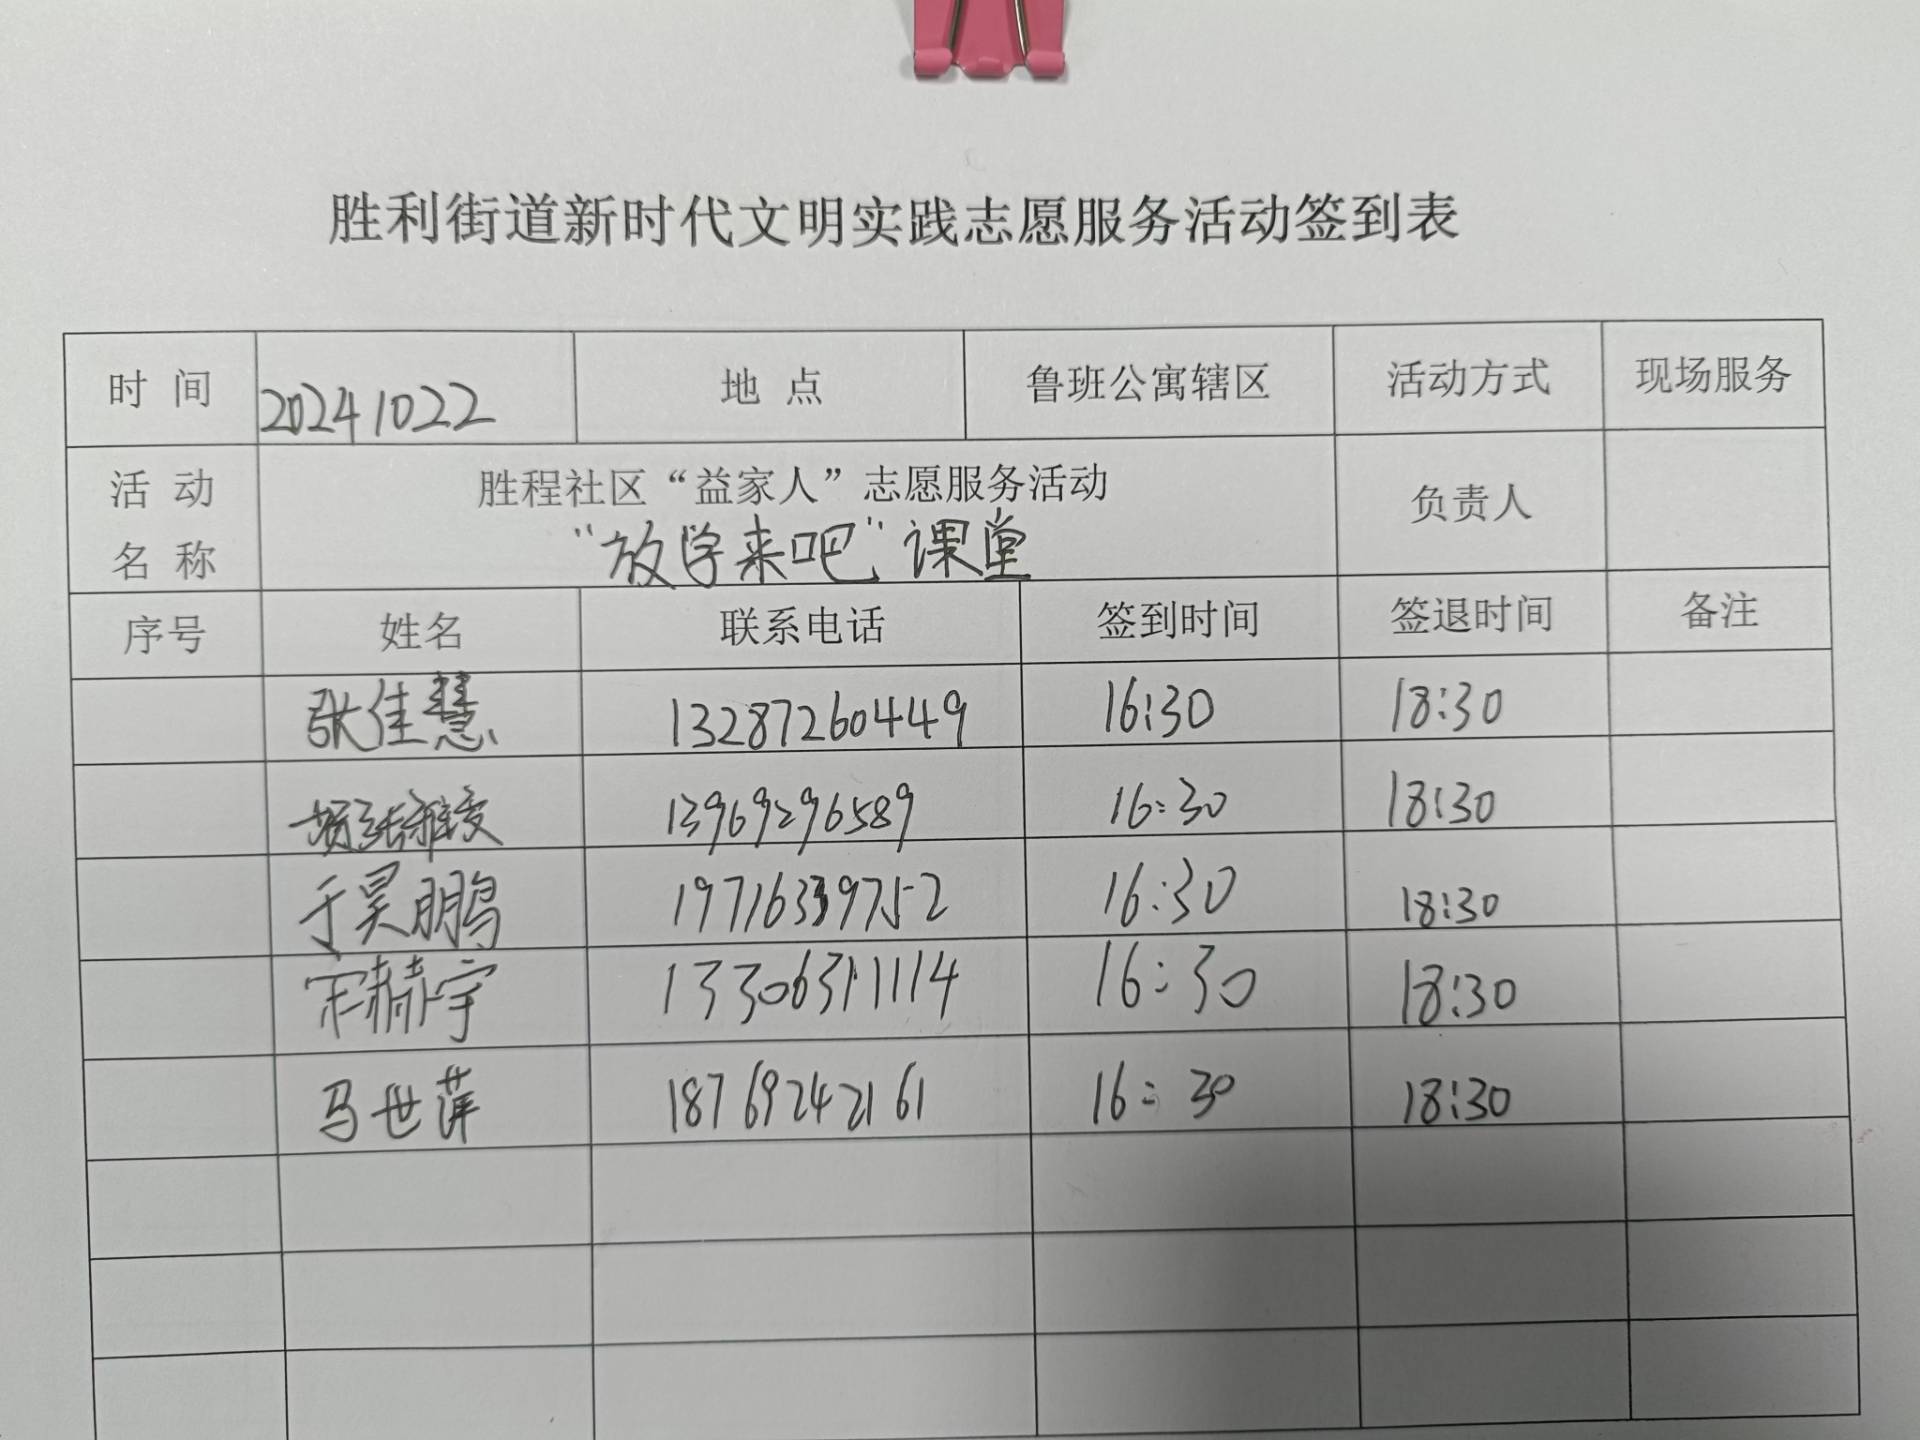 胜利街道新时代文明实践志愿服务活动签到表
时 间 20241022 地 点 鲁班公寓辖区 活动方式 现场服务
活 动 名 称 胜程社区“益家人”志愿服务活动 负责人
“放学来吧”课堂
序号 姓名 联系电话 签到时间 签退时间 备注
张佳慧 13287260449 16:30 18:30
13969296589 16:30 18:30
于昊鹏 19716339752 16:30 18:30
宋精宇 13306311114 16:30 18:30
马世萍 18769242161 16:30 18:30